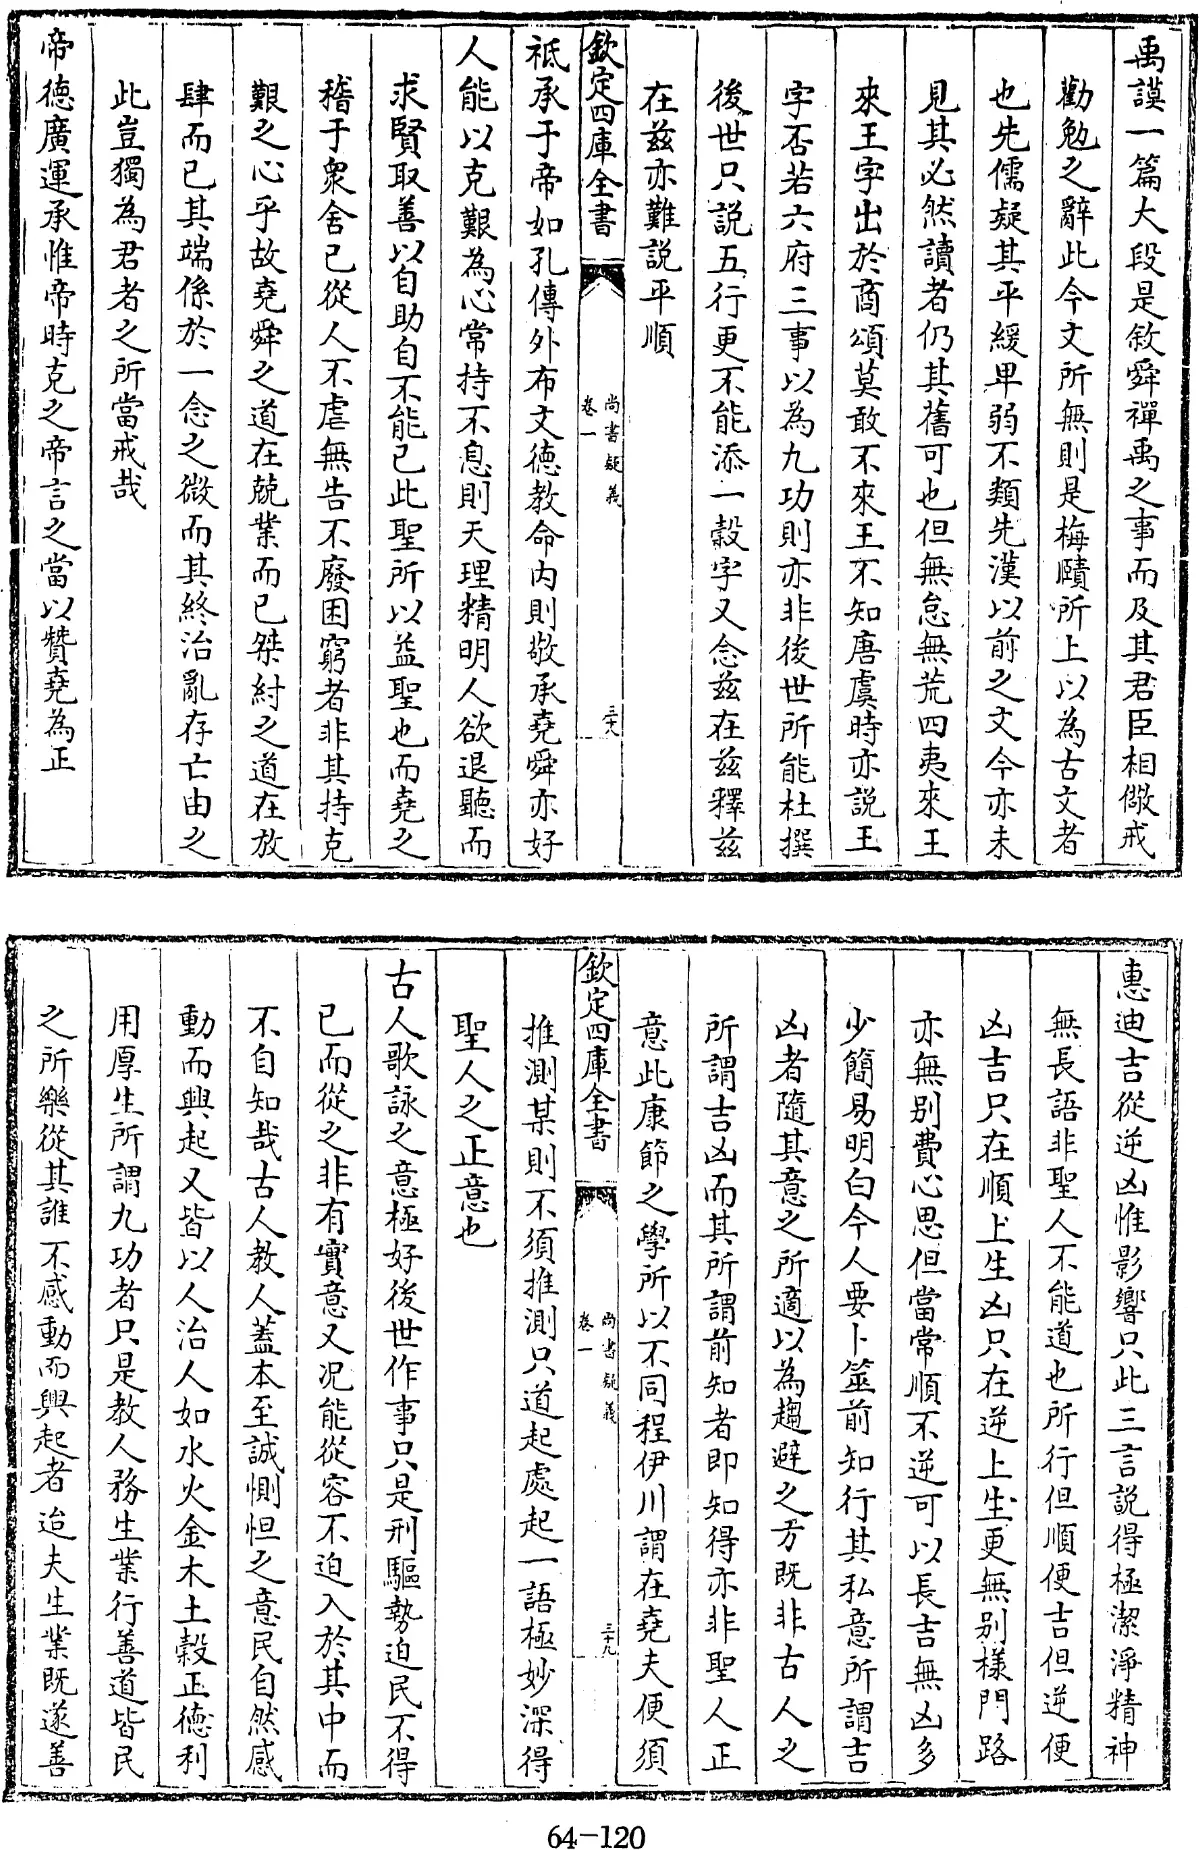 禹謨一篇大段是敘舜禪禹之事而及其君臣相儆戒
勸勉之辭此今文所無則是梅賾所上以為古文者
也先儒疑其平緩卑弱不類先漢以前之文今亦未
見其必然讀者仍其舊可也但無怠無荒四夷來王
來王字出於商頌莫敢不來王不知唐虞時亦說王
字否若六府三事以為九功則亦非後世所能杜撰
後世只說五行更不能添一穀字又念茲在茲釋茲
在茲亦難說平順
欽定四庫全書
尚書疑義
卷一
三十八
祗承于帝如孔傳外布文德教命內則敬承堯舜亦好
人能以克艱為心常持不息則天理精明人欲退聽而
求賢取善以自助自不能已此聖所以益聖也而堯之
稽于衆舍已從人不虐無告不廢困窮者非其持克
艱之心乎故堯舜之道在兢業而已桀紂之道在放
肆而已其端係於一念之微而其終治亂存亡由之
此豈獨為君者之所當戒哉
帝德廣運承惟帝時克之帝言之當以贊堯為正
惠迪吉從逆凶惟影響只此三言說得極潔淨精神
無長語非聖人不能道也所行但順便吉但逆便
凶吉只在順上生凶只在逆上生更無别樣門路
亦無别費心思但當常順不逆可以長吉無凶多
少簡易明白今人要卜筮前知行其私意所謂吉
凶者隨其意之所適以為趨避之方既非古人之
所謂吉凶而其所謂前知者即知得亦非聖人正
意此康節之學所以不同程伊川謂在堯夫便須
欽定四庫全書
尚書疑義
卷一
三十九
推測某則不須推測只道起處起一語極妙深得
聖人之正意也
古人歌詠之意極好後世作事只是刑驅勢迫民不得
已而從之非有實意又况能從容不迫入於其中而
不自知哉古人教人蓋本至誠惻怛之意民自然感
動而興起又皆以人治人如水火金木土穀正德利
用厚生所謂九功者只是教人務生業行善道皆民
之所樂從其誰不感動而興起者迨夫生業既遂善
64-120